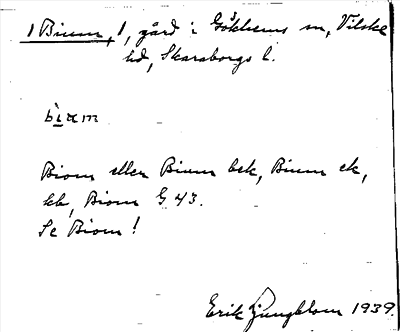 1 Bium, 1, gård i Gökhems sn, Vilske
hd, Skaraborgs l.
bìam
Biom eller Bium bek, Bium ek,
kb, Biom G 43.
Se Biom!
Erik Ljungblom 1939.